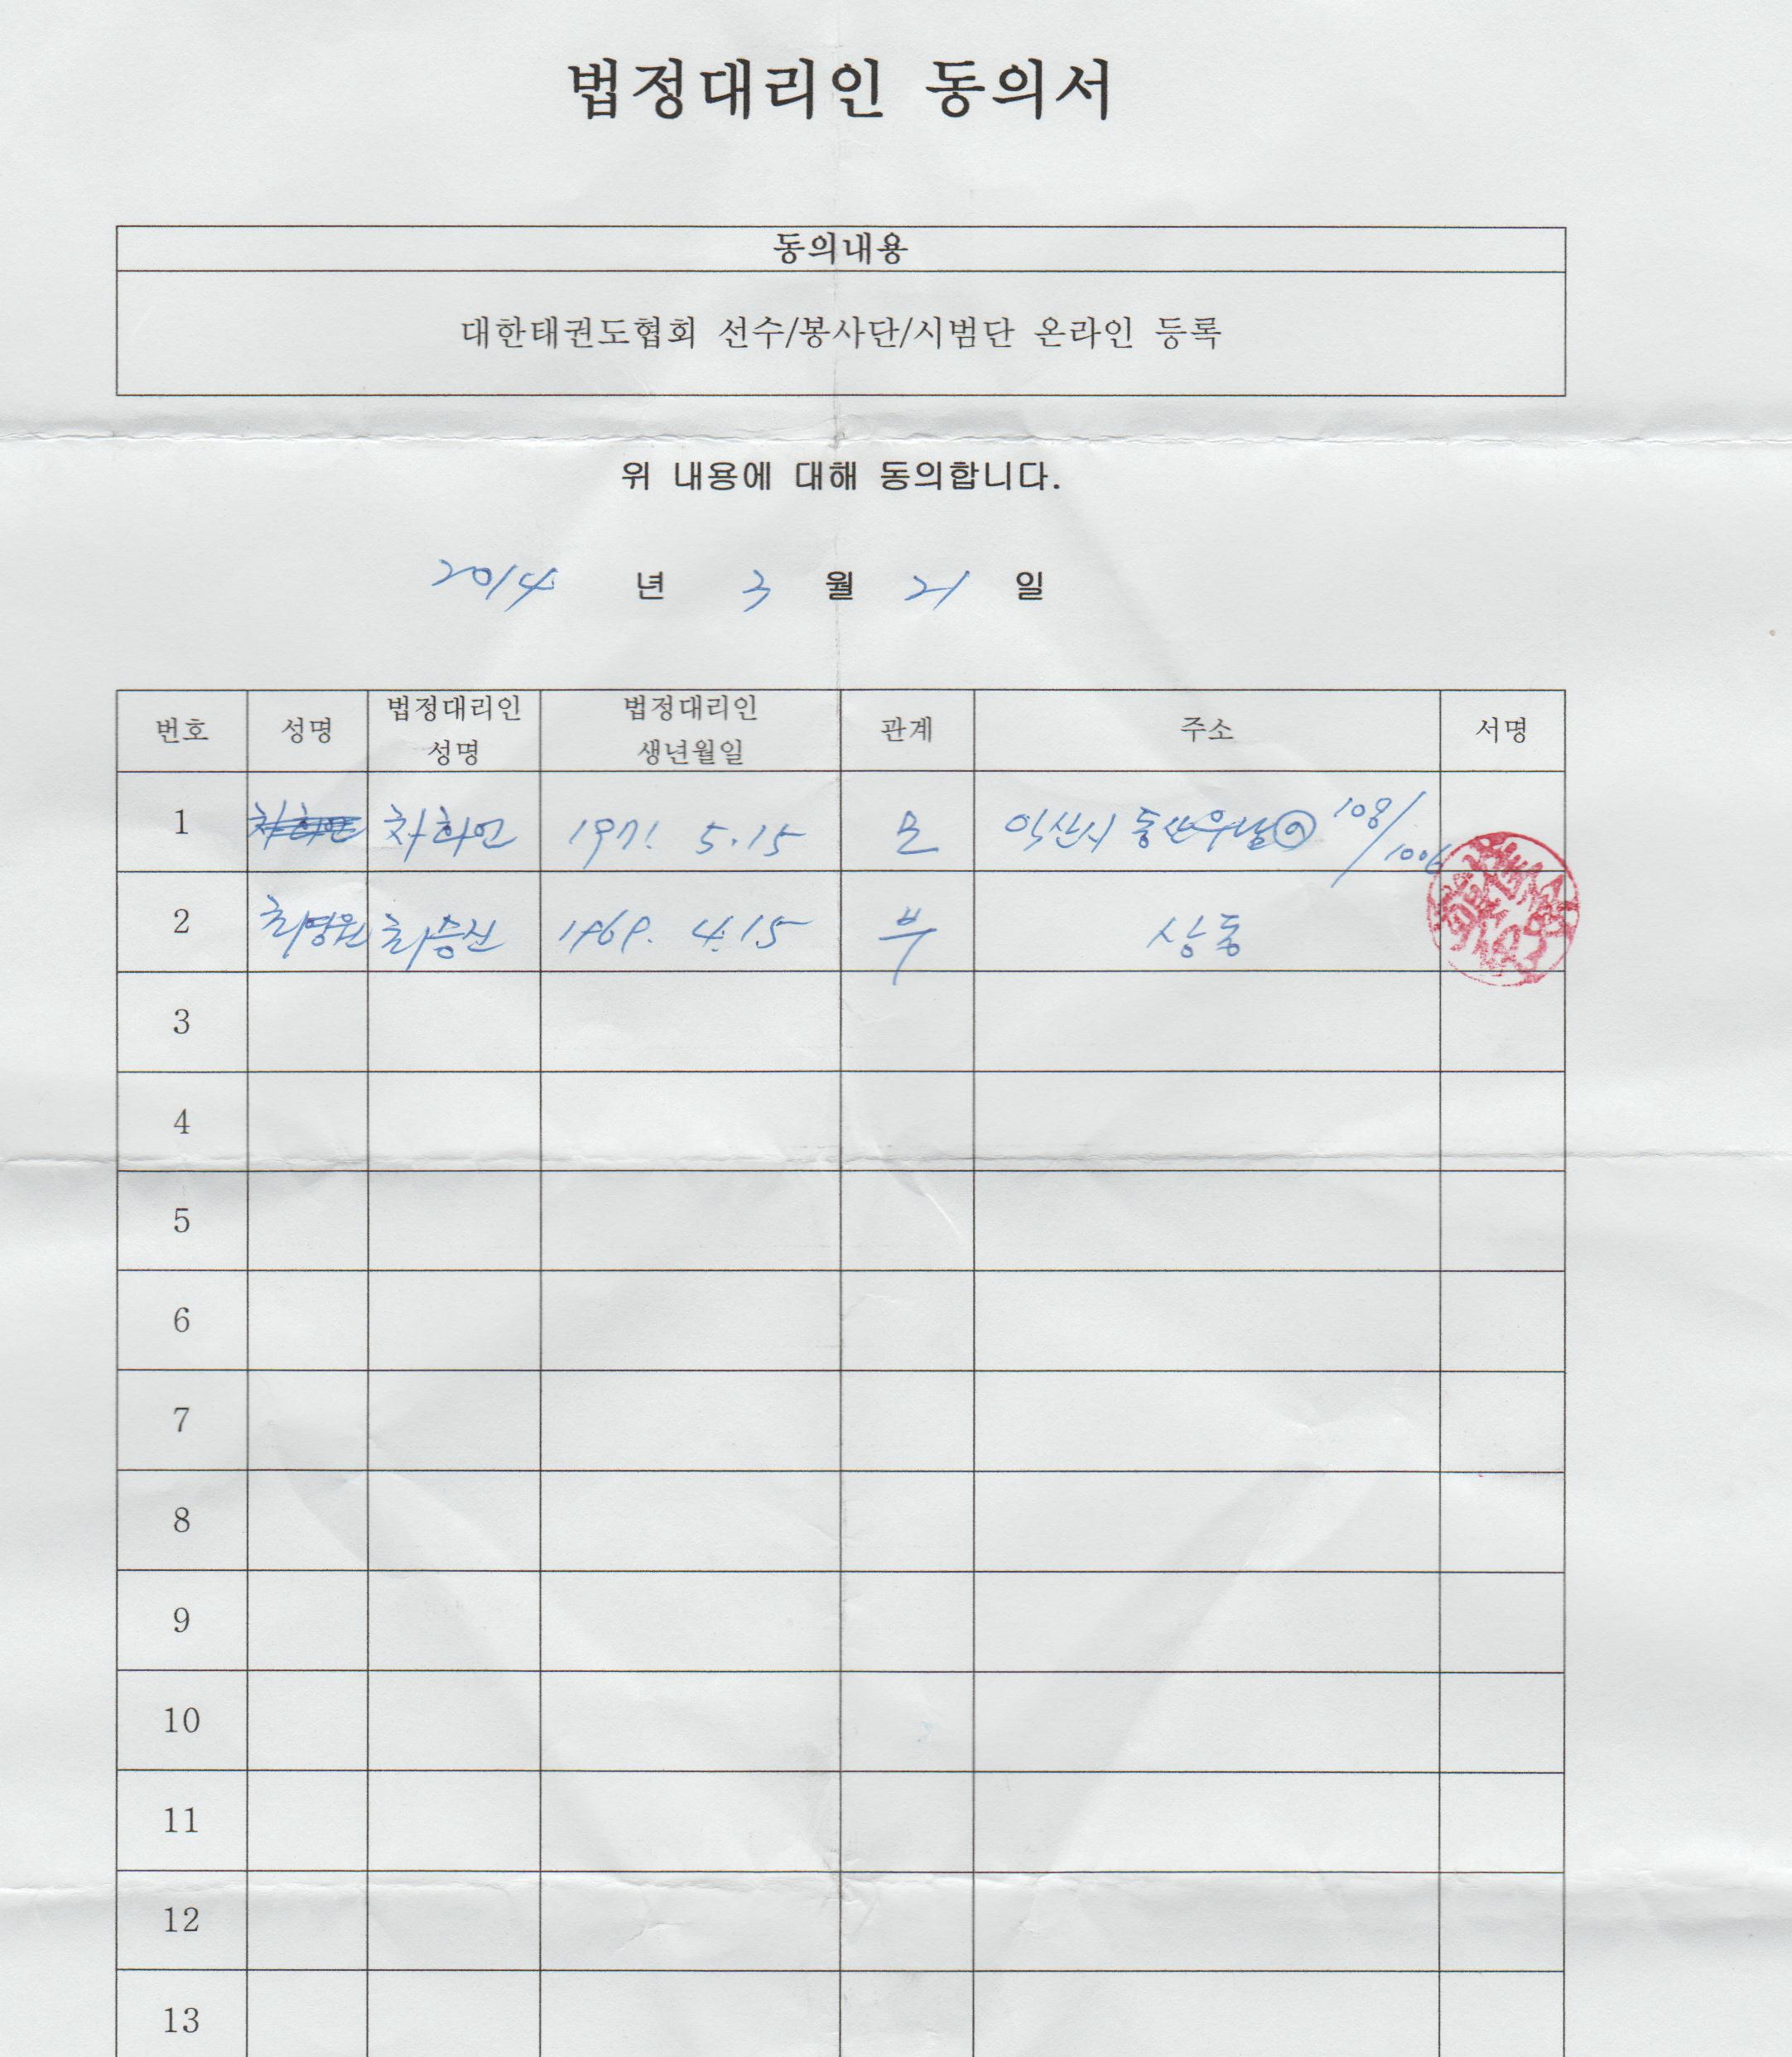 법정대리인 동의서
동의내용
대한태권도협회 선수/봉사단/시범단 온라인 등록
위 내용에 대해 동의합니다.
2014 년 3 월 21 일
번호 성명 법정대리인 성명 법정대리인 생년월일 관계 주소 서명
1 차희언 1971. 5.15 모 익산시 동산우남 108/1006
2 최영원 최승신 1969. 4.15 부 상동
3
4
5
6
7
8
9
10
11
12
13